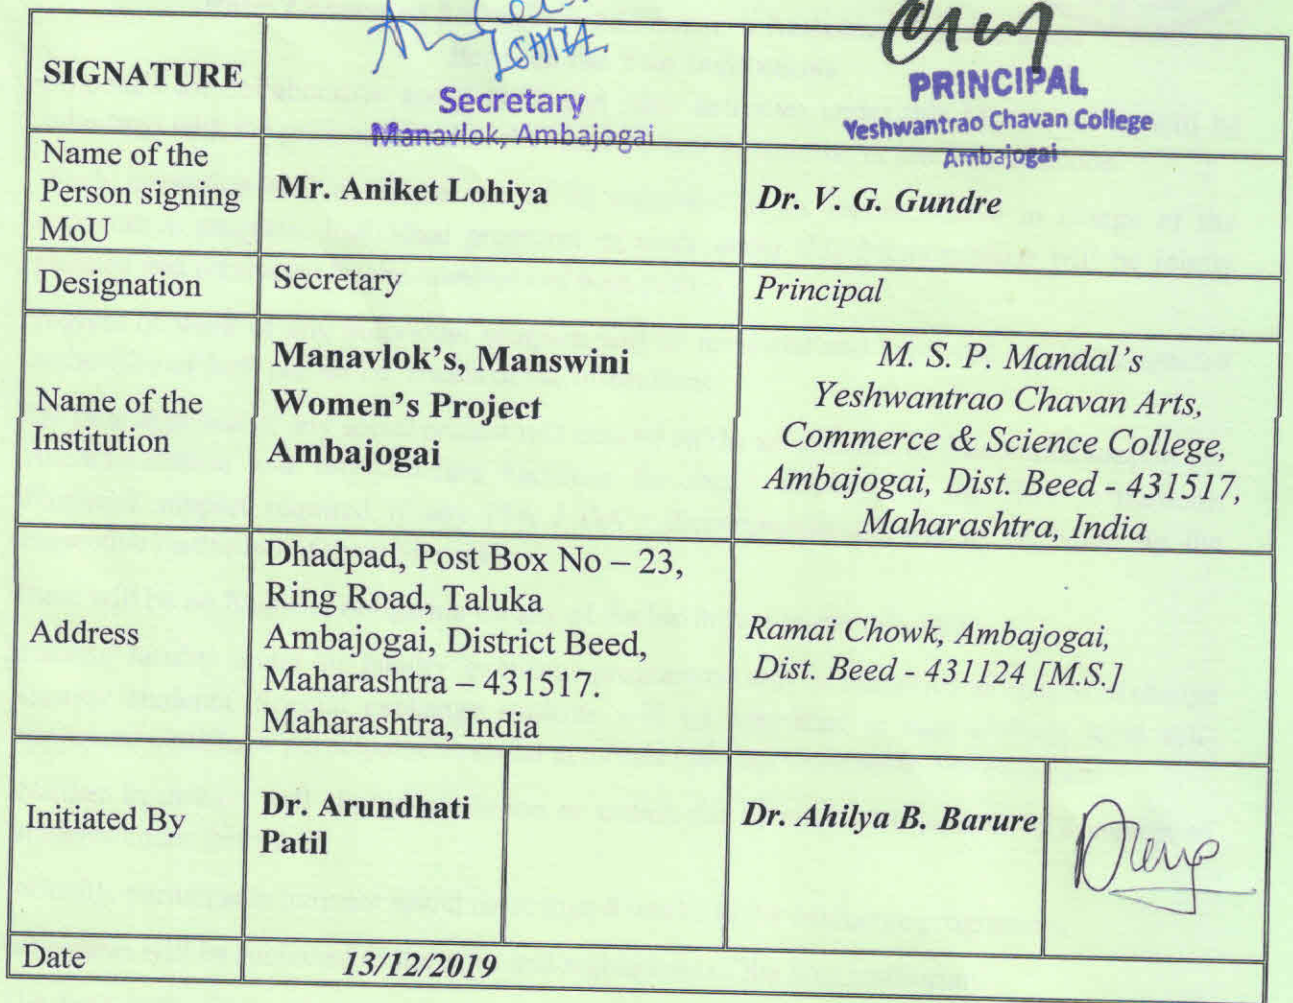 SIGNATURE
LOHIYA
Secretary
Manavlok, Ambajogai
PRINCIPAL
Yeshwantrao Chavan College
Ambajogai
Name of the
Person signing
MoU
Mr. Aniket Lohiya
Dr. V. G. Gundre
Designation
Secretary
Principal
Name of the
Institution
Manavlok's, Manswini
Women's Project
Ambajogai
M. S. P. Mandal's
Yeshwantrao Chavan Arts,
Commerce & Science College,
Ambajogai, Dist. Beed - 431517,
Maharashtra, India
Address
Dhadpad, Post Box No – 23,
Ring Road, Taluka
Ambajogai, District Beed,
Maharashtra – 431517.
Maharashtra, India
Ramai Chowk, Ambajogai,
Dist. Beed - 431124 [M.S.]
Initiated By
Dr. Arundhati
Patil
Dr. Ahilya B. Barure
Date
13/12/2019